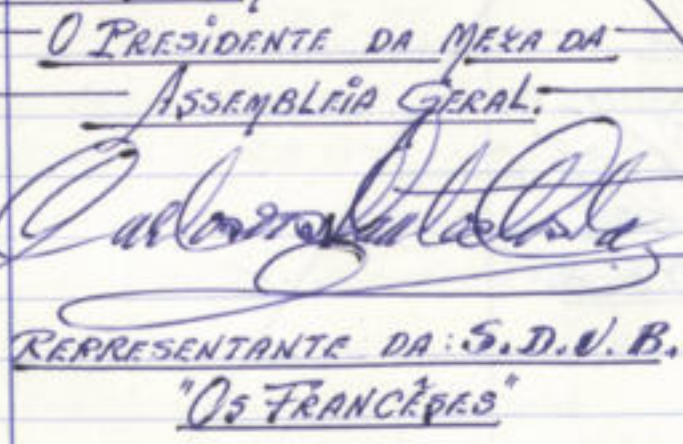 O PRESIDENTE DA MEZA DA
ASSEMBLEIA GERAL.
REPRESENTANTE DA: S.D.V.B.
"OS FRANCÊSES"